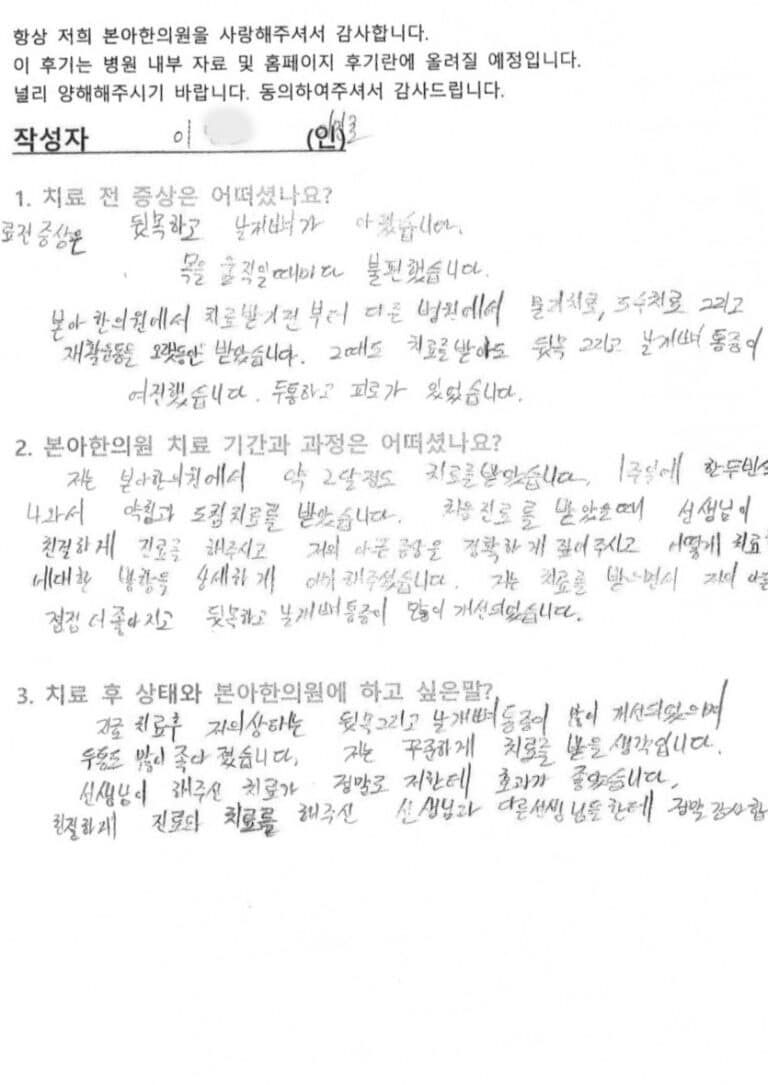 항상 저희 본아한의원을 사랑해주셔서 감사합니다.
이 후기는 병원 내부 자료 및 홈페이지 후기란에 올려질 예정입니다.
널리 양해해주시기 바랍니다. 동의하여주셔서 감사드립니다.
작성자 이 (인)
1. 치료 전 증상은 어떠셨나요?
료전증상은 뒷목하고 날개뼈가 아팠습니다.
목을 움직일때마다 불편했습니다.
본아한의원에서 치료받기전부터 다른 병원에서 물리치료, 도수치료 그리고
재활운동을 오랫동안 받았습니다. 그때도 치료를받아도 뒷목 그리고 날개뼈 통증이
여전했습니다. 두통하고 피로가 있었습니다.
2. 본아한의원 치료 기간과 과정은 어떠셨나요?
저는 본아한의원에서 약 2달정도 치료를받았습니다. 1주일에 한두번씩
나와서 약침과 도침치료를 받았습니다. 처음진료를 받았을때 선생님이
친절하게 진료를 해주시고 저의 아픈 증상을 정확하게 짚어주시고 어떻게 치료
에대한 방향을 상세하게 해주셨습니다. 저는 치료를 받으면서 저의
점점 더 좋아지고 뒷목하고 날개뼈통증이 많이 개선되었습니다.
3. 치료 후 상태와 본아한의원에 하고 싶은말?
지금 치료후 저의상태는 뒷목그리고 날개뼈통증이 많이 개선되었으며
두통도 많이 좋아졌습니다. 저는 꾸준하게 치료를 받을생각입니다.
선생님이 해주신 치료가 정말로 저한테 효과가 좋았습니다.
친절하게 진료와 치료를 해주신 선생님과 다른선생님들한테 정말 감사합